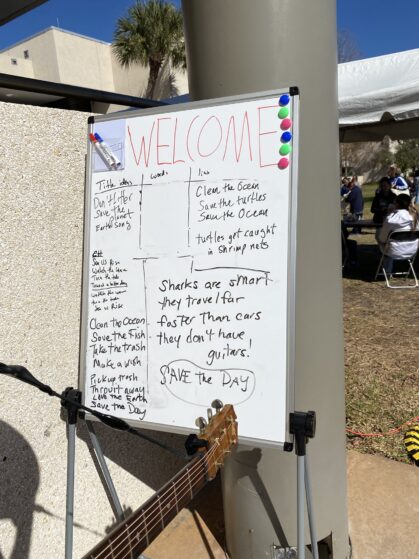 WELCOME
Title ideas
Don't litter
Save the
planet
Earth Song
words
lines
Clean the Ocean
Save the turtles
Save the Ocean
turtles get caught
in Shrimp nets
Sea Us Rise
Sharks are smart
they travel far
faster than cars
they don't have
guitars!
SAVE the DAY
Clean the Ocean
Save the Fish
Take the trash
Make a wish
Pick up trash
Throw it away
Love the Earth
Save the Day